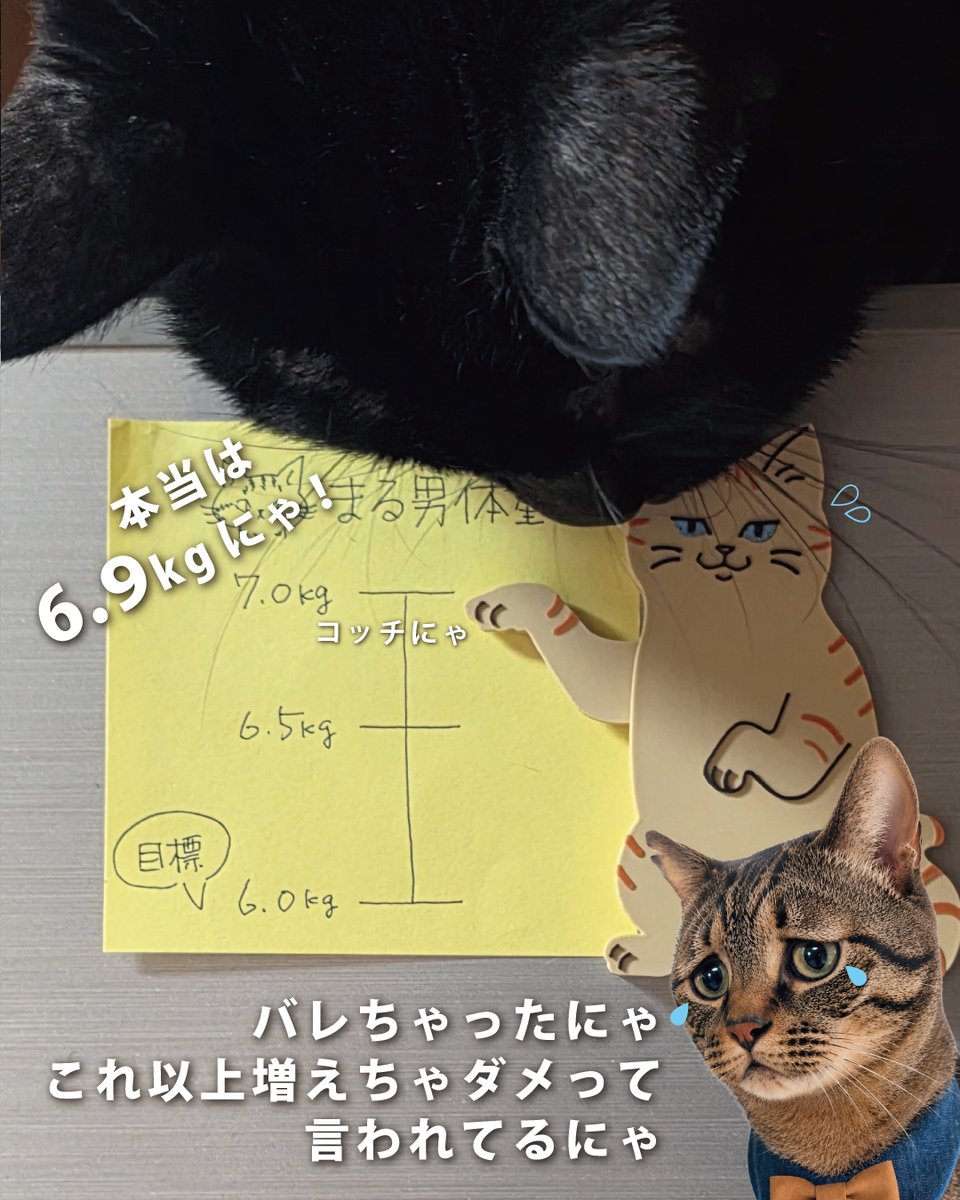 本当は
6.9kgにゃ!
まる男体
7.0kg
コッチにゃ
6.5kg
目標
6.0kg
バレちゃったにゃ
これ以上増えちゃダメって
言われてるにゃ